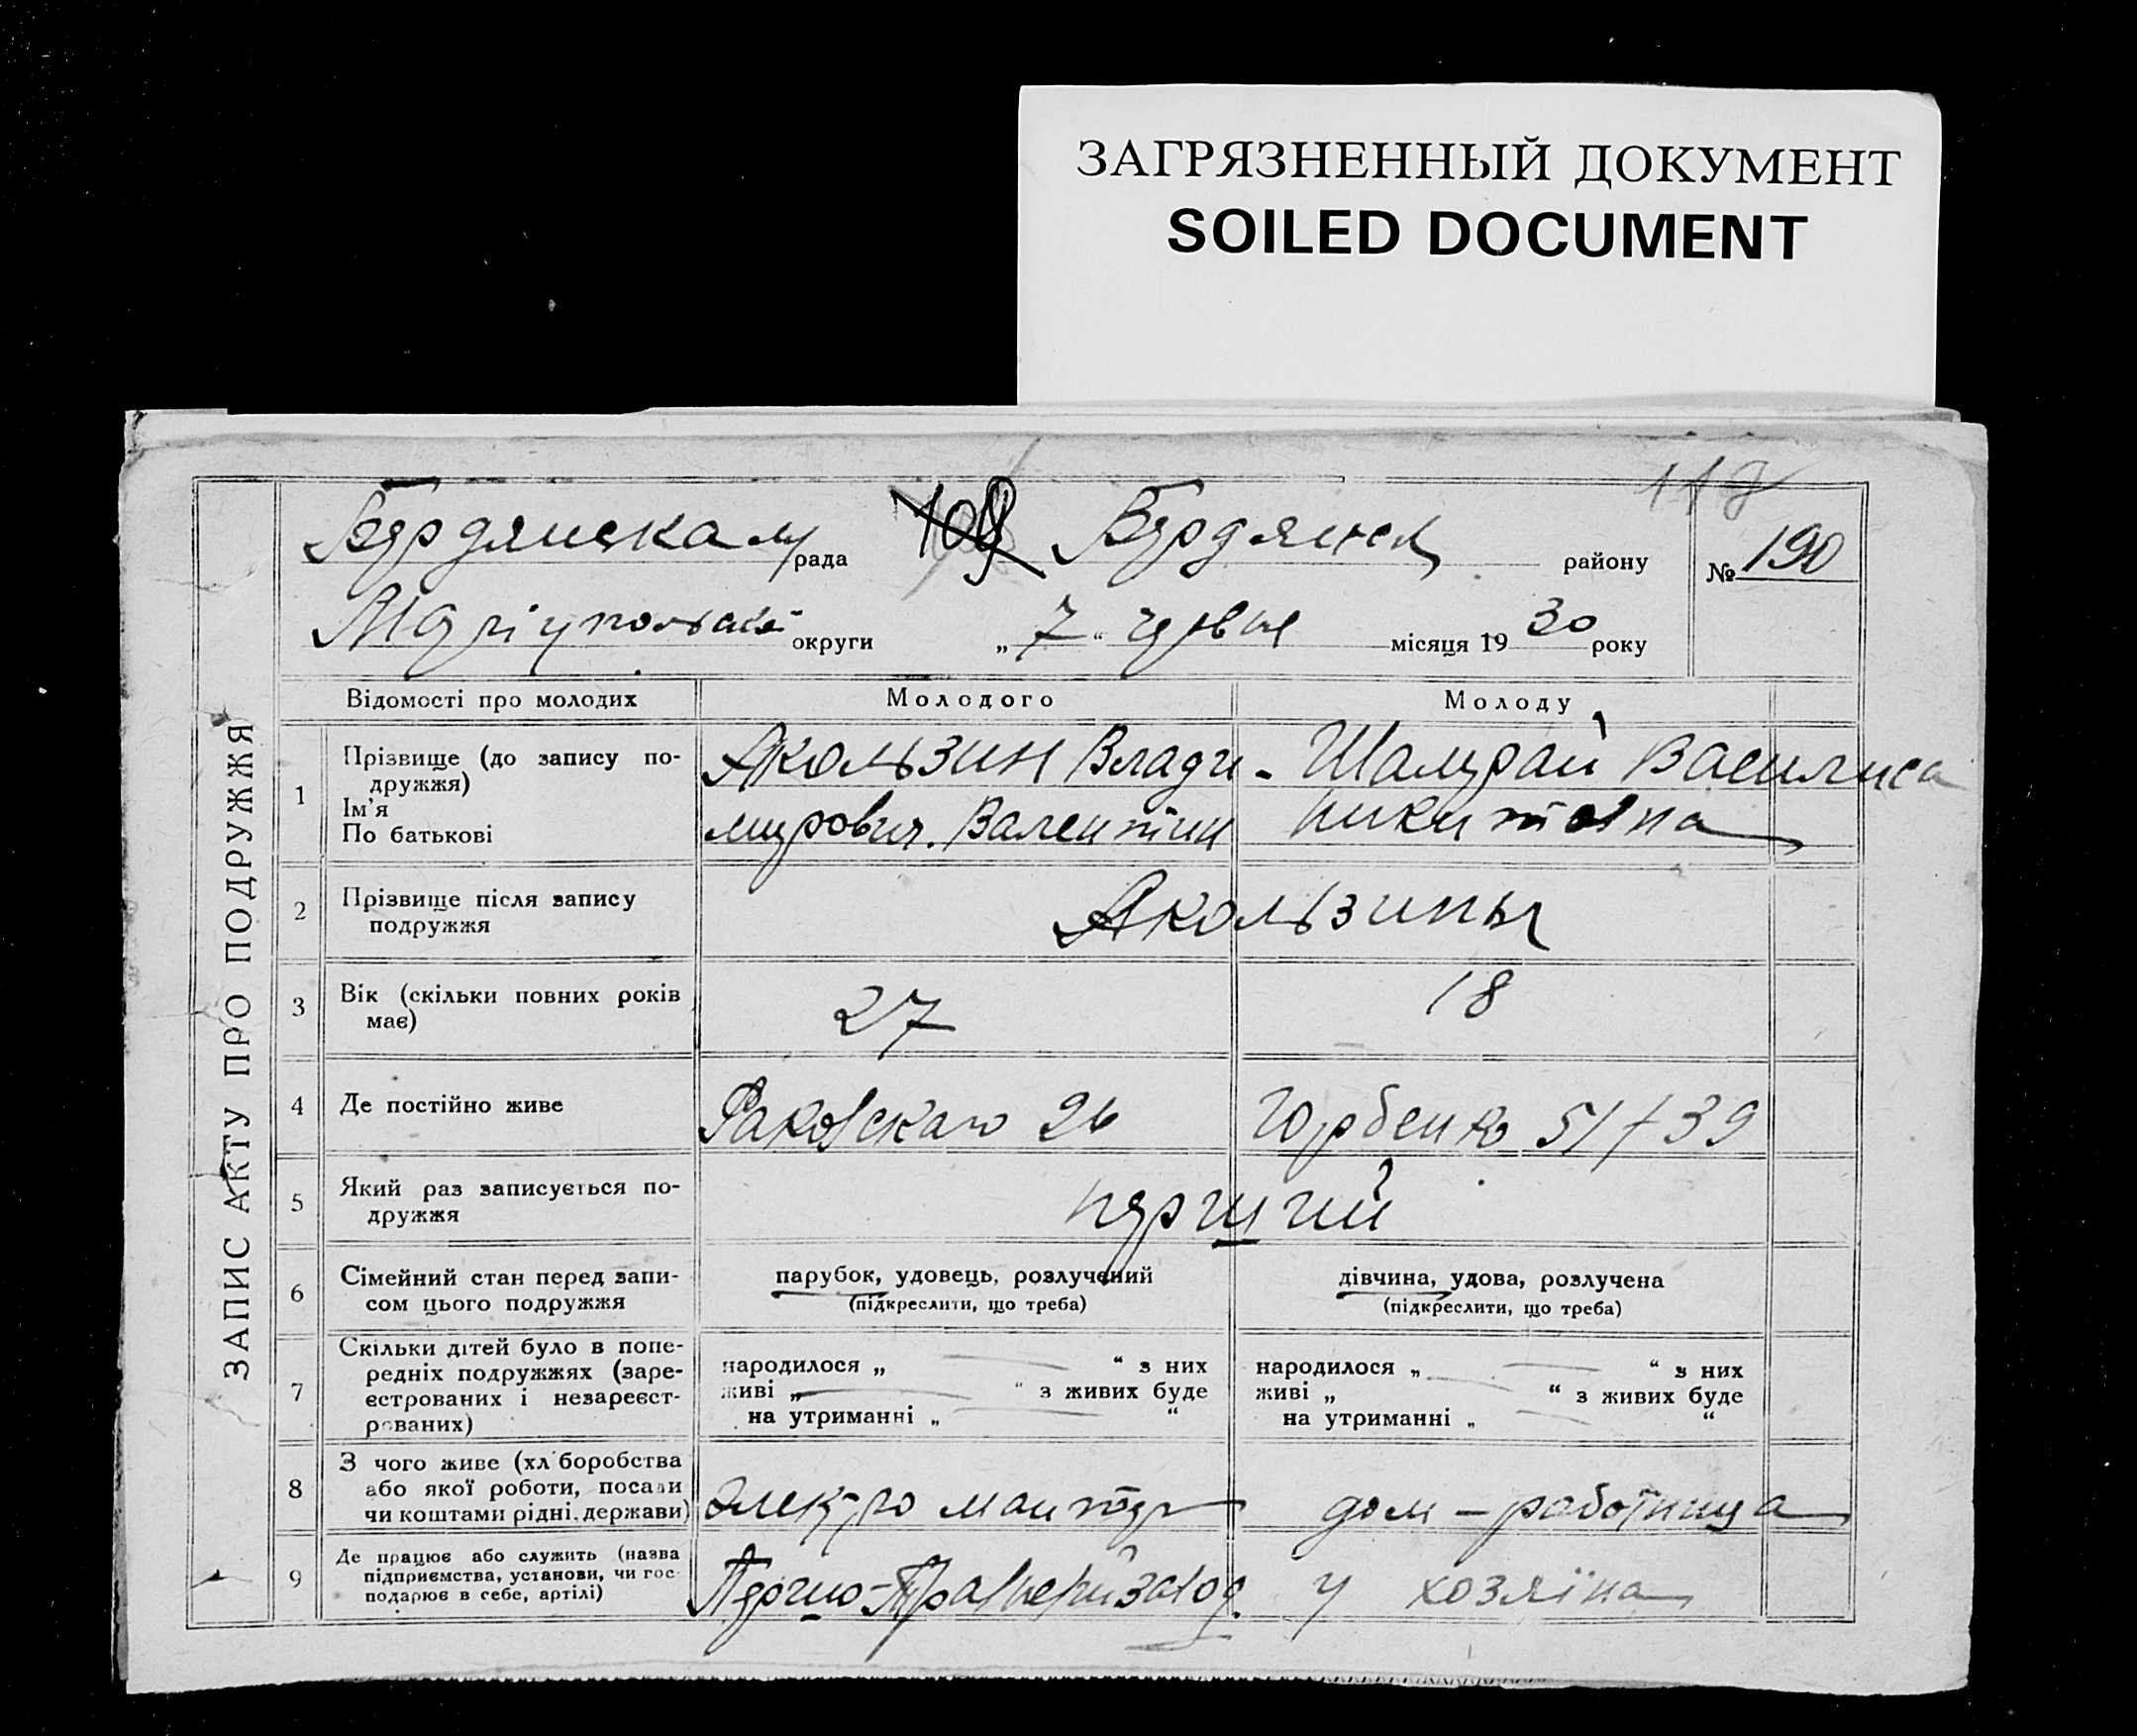 ЗАГРЯЗНЕННЫЙ ДОКУМЕНТ
SOILED DOCUMENT
118
Бердянска м рада 108 Бердянськ району № 190
Маріупольської округи „ 7 “ червня місяця 19 30 року
ЗАПИС АКТУ ПРО ПОДРУЖЖЯ
Відомості про молодих Молодого Молоду
1 Прізвище (до запису по-
дружжя)
Ім'я
По батькові
Акользин Влади-
мирович. Валентин
Шамрай Василиса
Никитовна
2 Прізвище після запису
подружжя
Акользины
3 Вік (скільки повних років
має)
27 18
4 Де постійно живе Раковскаго 26 Горбенко 51/39
5 Який раз записується по-
дружжя
перший
6 Сімейний стан перед запи-
сом цього подружжя
парубок, удовець, розлучений
(підкреслити, що треба)
дівчина, удова, розлучена
(підкреслити, що треба)
7 Скільки дітей було в попе-
редніх подружжях (заре-
єстрованих і незареєст-
рованих)
народилося „ — “ з них
живі „ — “ з живих буде
на утриманні „ — “
народилося „ — “ з них
живі „ — “ з живих буде
на утриманні „ — “
8 З чого живе (хліборобства
або якої роботи, посади
чи коштами рідні, держави)
Электро монтер дом-работница
9 Де працює або служить (назва
підприємства, установи, чи гос-
подарює в себе, артілі)
Перво-Травнейзавод у хозяїна